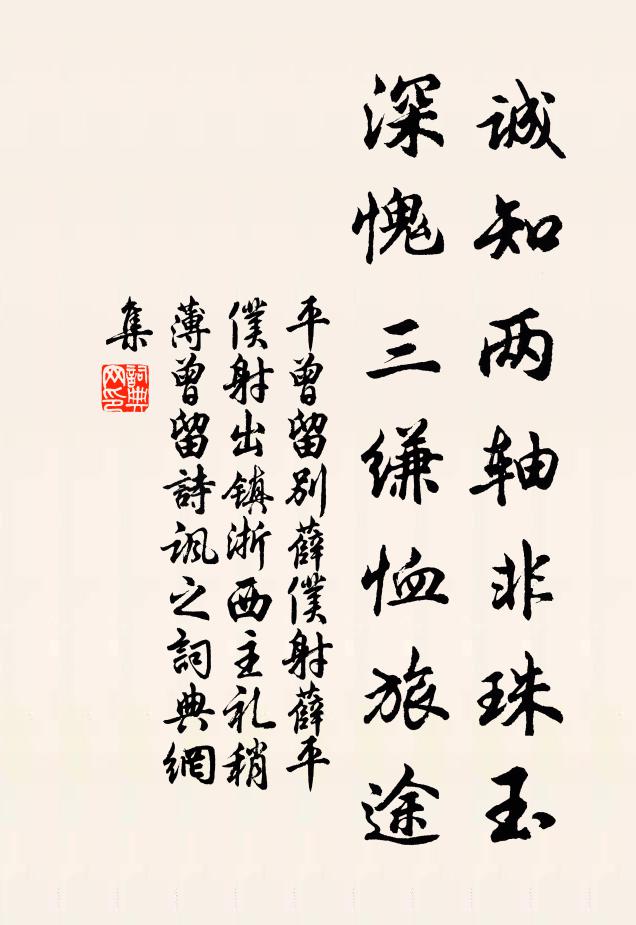 诚知两轴非珠玉
深愧三缣恤旅途
平曾留別薛僕射薛平
僕射出镇浙西主礼稍
薄曾留詩讽之詞典網
集
詞典网印